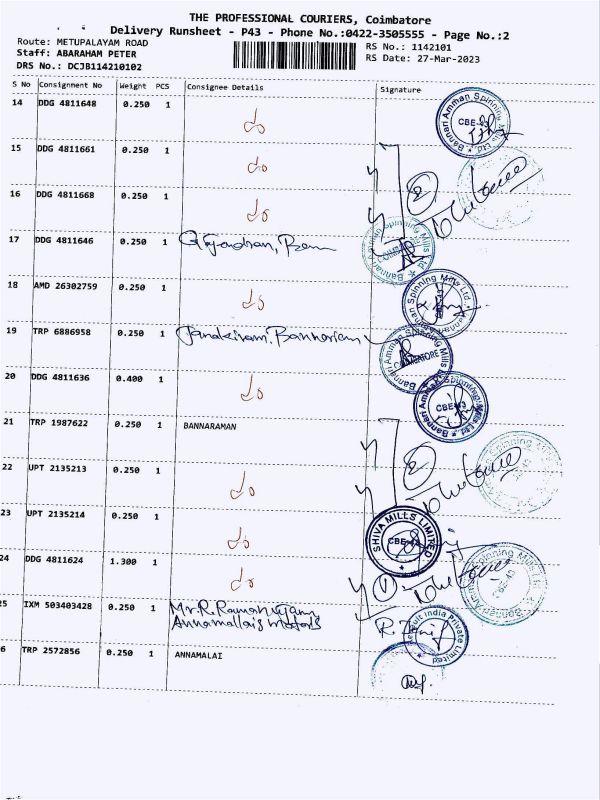 THE PROFESSIONAL COURIERS, Coimbatore
Delivery Runsheet - P43 - Phone No.:0422-3505555 - Page No.:2
Route: METUPALAYAM ROAD
RS No.: 1142101
Staff: ABARAHAM PETER
RS Date: 27-Mar-2023
DRS No.: DCJB114210102
S No Consignment No Weight PCS Consignee Details Signature
14 DDG 4811648 0.250 1 do
CBE-43
Bannari Amman Spinning Mills Ltd.
15 DDG 4811661 0.250 1 do
16 DDG 4811668 0.250 1 do
17 DDG 4811646 0.250 1
Bannari Amman Spinning Mills Ltd
18 AMD 26302759 0.250 1 do
Spinning Mills Ltd.
19 TRP 6886958 0.250 1 Janakiram, Bannariam
Bannari Amman Spinning Mills
20 DDG 4811636 0.400 1 do
CBE-43
Bannari Amman Spinning Mills Ltd.
21 TRP 1987622 0.250 1 BANNARAMAN
22 UPT 2135213 0.250 1 do
23 UPT 2135214 0.250 1 do
SHIVA MILLS LIMITED
CBE-43
24 DDG 4811624 1.300 1 do
25 IXM 503403428 0.250 1 Mr.R.Ramanujam
Annamallais Motors
India Private Limited
6 TRP 2572856 0.250 1 ANNAMALAI